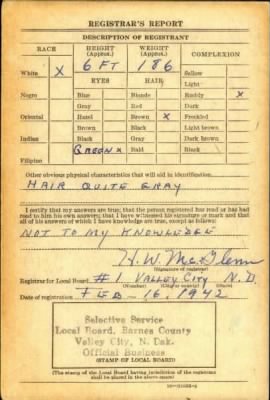 REGISTRAR'S REPORT
DESCRIPTION OF REGISTRANT
RACE HEIGHT (Approx.) WEIGHT (Approx.) COMPLEXION
White X 6 FT 186 Sallow
EYES HAIR Light
Negro Blue Blonde Ruddy X
Gray Red Dark
Oriental Hazel Brown X Freckled
Brown Black Light brown
Indian Black Gray Dark brown
GREEN X Bald Black
Filipino
Other obvious physical characteristics that will aid in identification
HAIR QUITE GRAY
I certify that my answers are true; that the person registered has read or has had
read to him his own answers; that I have witnessed his signature or mark and that
all of his answers of which I have knowledge are true, except as follows:
NOT TO MY KNOWLEDGE
H. W. McGlenn
(Signature of registrar)
Registrar for Local Board #1 VALLEY CITY N. D.
(Number) (City or county) (State)
Date of registration FEB - 16, 1942
Selective Service
Local Board, Barnes County
Valley City, N. Dak.
Official Business
(STAMP OF LOCAL BOARD)
(The stamp of the Local Board having jurisdiction of the registrant
shall be placed in the above space)